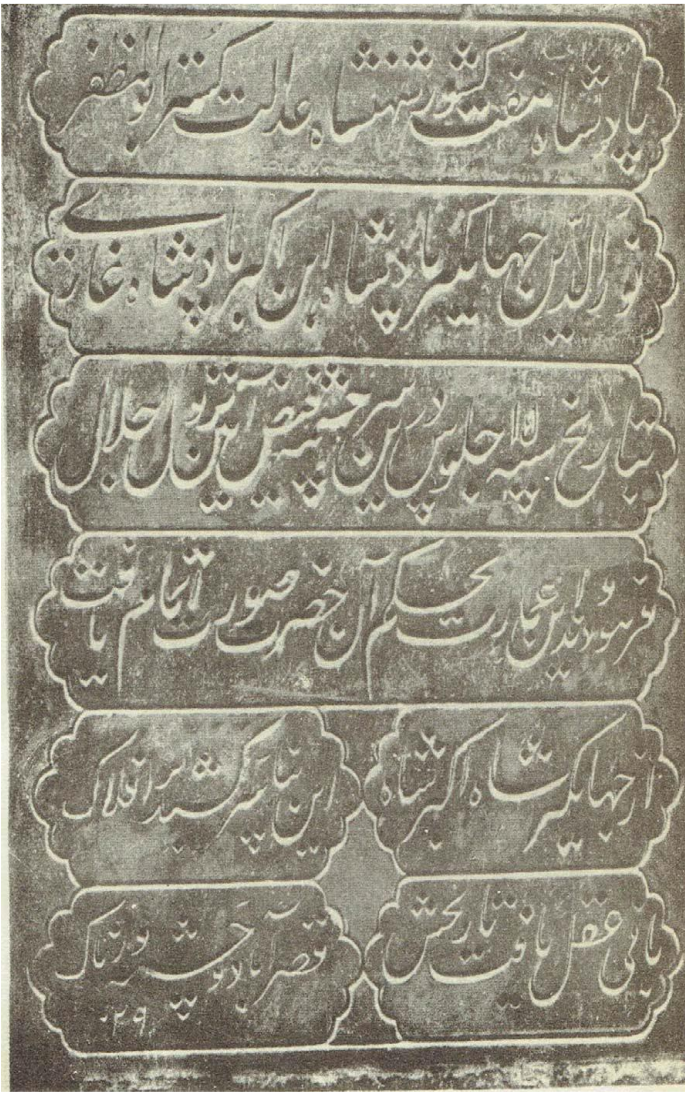 پادشاه هفت کشور شهنشاه عدالت گستر ابوالمظفر
نورالدین جهانگیر پادشاه ابن اکبر پادشاه غازی
بتاریخ سنه جلوس درین سرچشمه فیض آیین نزول اجلال
فرمودند این عمارت بحکم آن حضرت صورت اتمام یافت
از جهانگیر شاه اکبر شاه
این بنا سر کشید بر افلاک
بانی عقل یافت تاریخش
قصر آباد و چشمه ورناک
۰۲۹